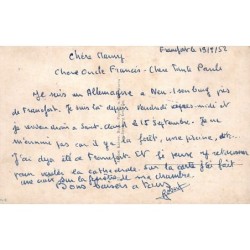 Francfort le 13/9/52
Chère Maury
Chers Oncle Francis - Chère Tante Paule
Je suis en Allemagne à Neu-Isenburg près
de Francfort. Je suis là depuis Vendredi après-midi et
je reviendrai à Saint-Cloud le 15 Septembre. Je ne
m'ennuie pas car il y a la forêt, une piscine, etc.
J'ai déjà été à Francfort et je pense y retourner
pour visiter la cathédrale. Sur la carte j'ai fait
une croix sur la fenêtre de ma chambre.
Bons baisers à tous